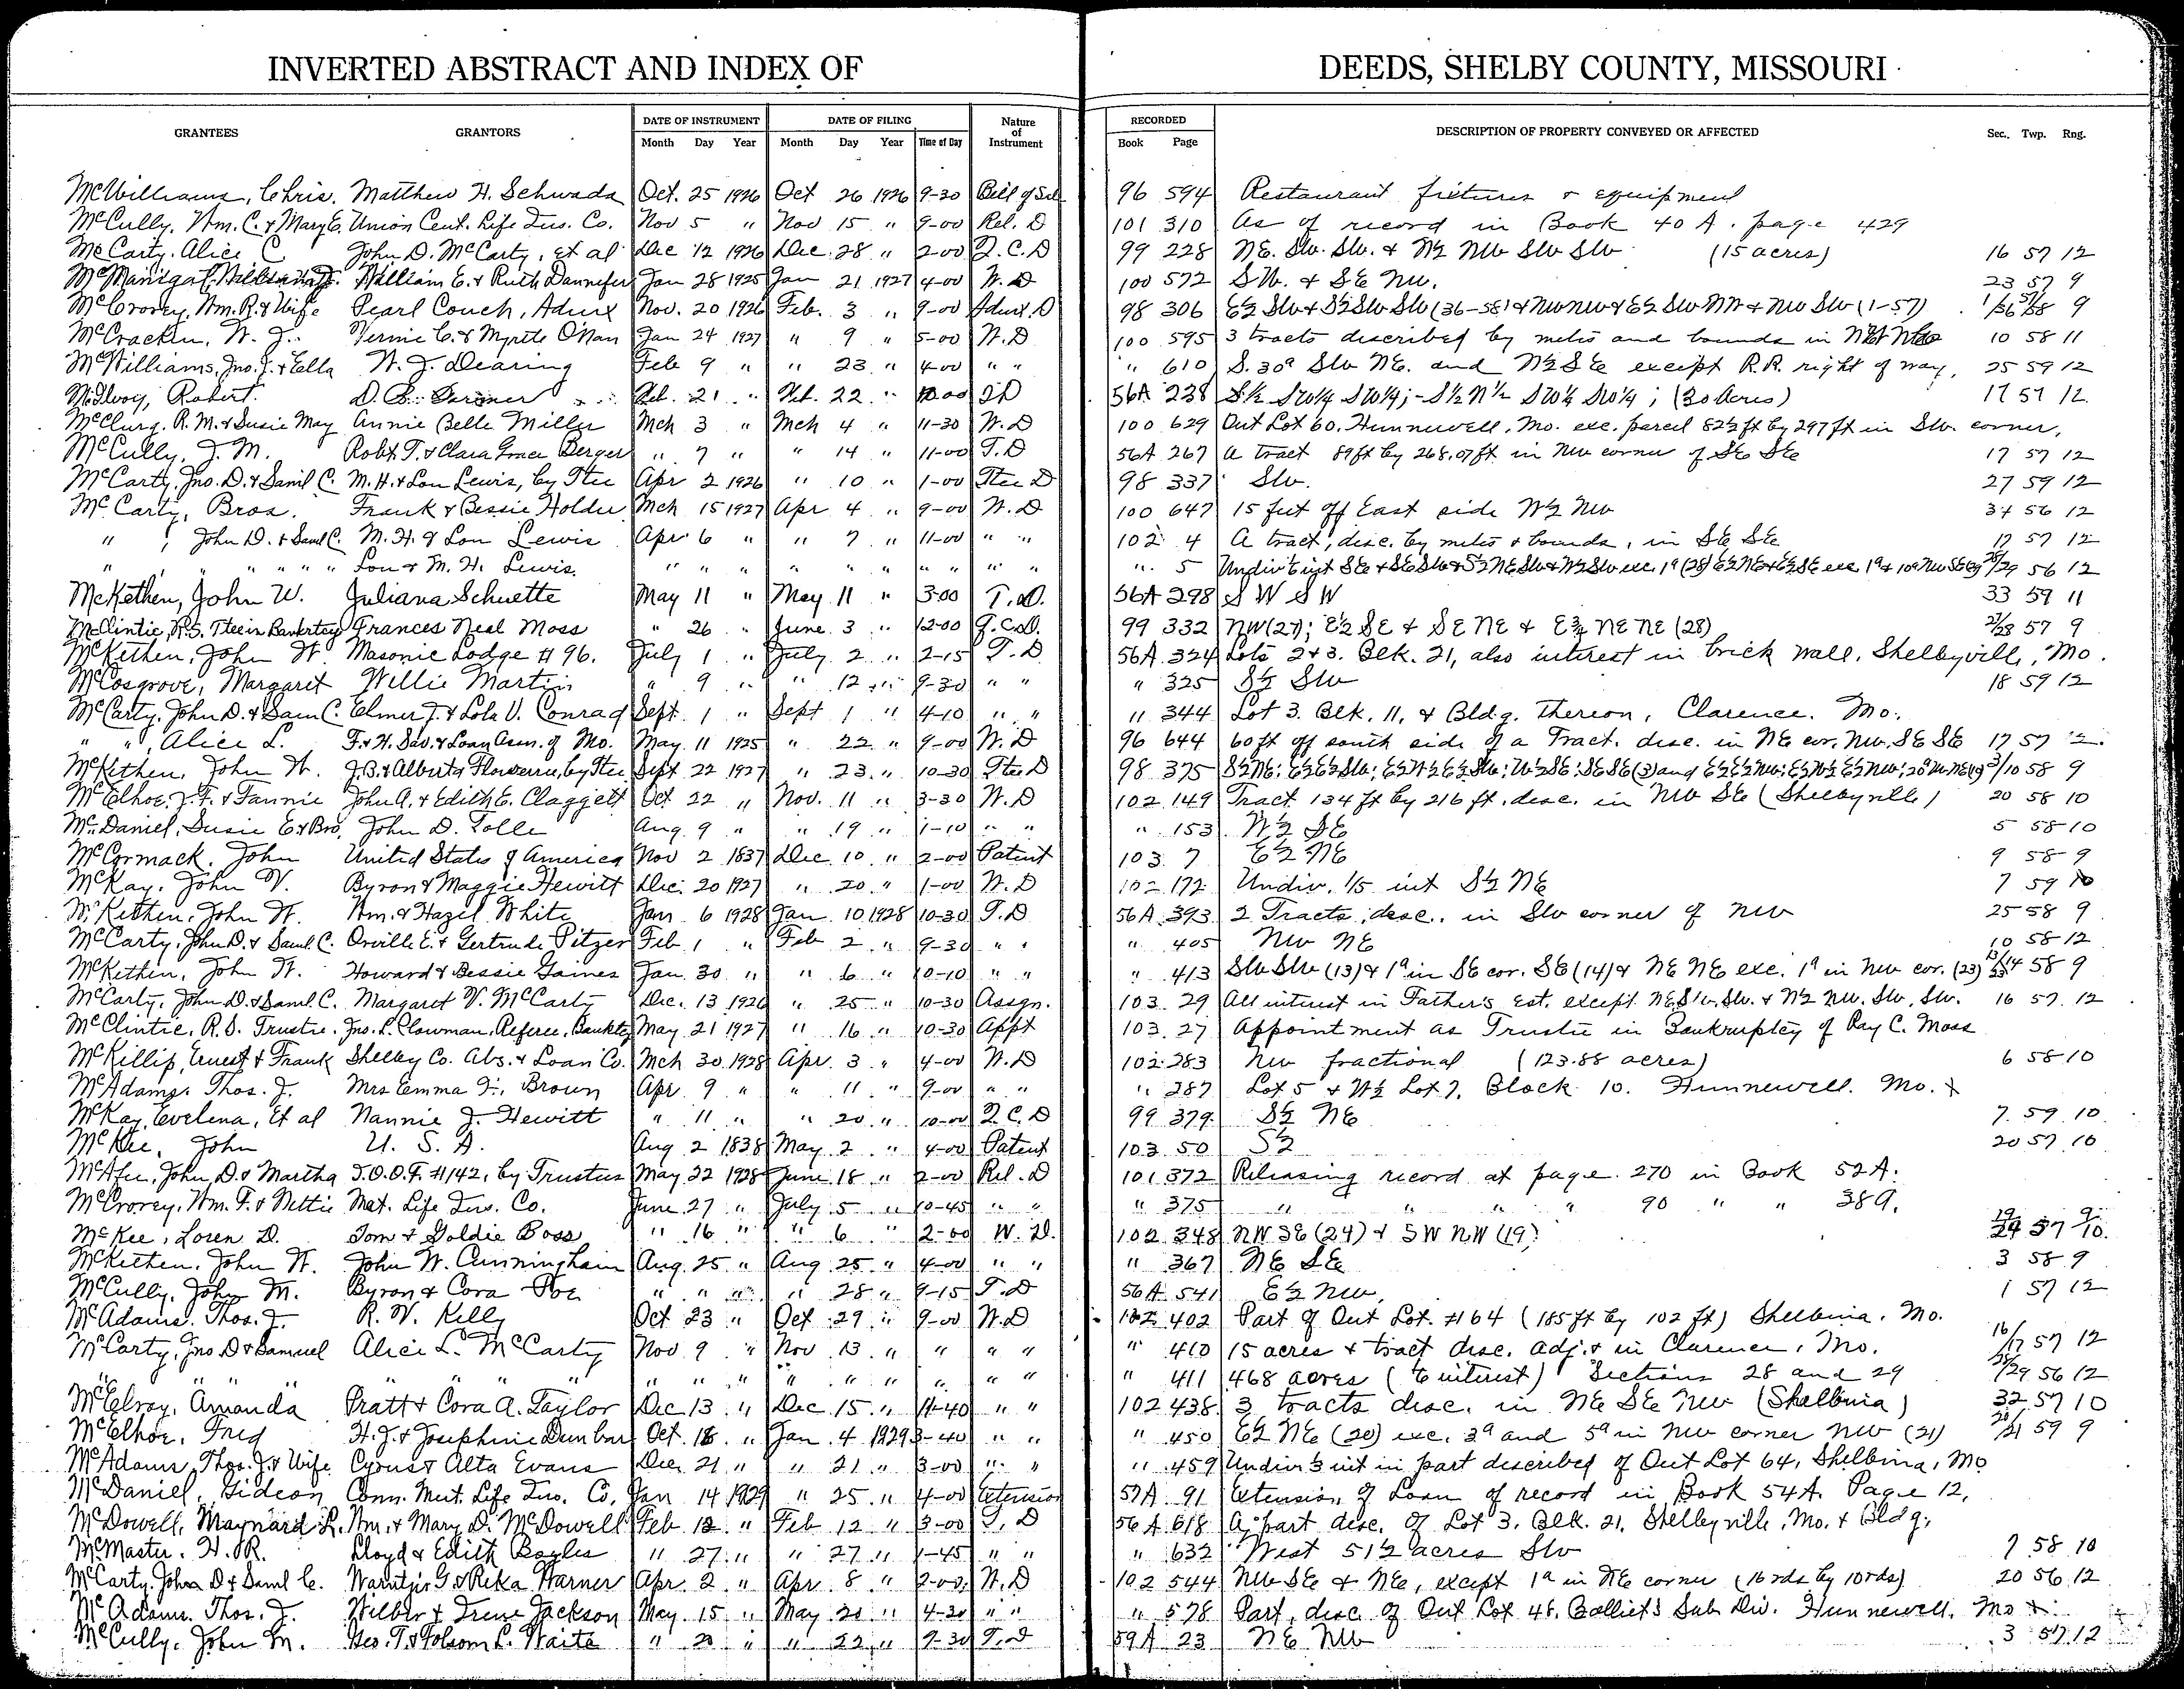 INVERTED ABSTRACT AND INDEX OF DEEDS, SHELBY COUNTY, MISSOURI
GRANTEES GRANTORS DATE OF INSTRUMENT DATE OF FILING Nature of Instrument RECORDED DESCRIPTION OF PROPERTY CONVEYED OR AFFECTED Sec. Twp. Rng.
Month Day Year Month Day Year Time of Day Book Page
McWilliams, Chris. Matthew H. Schwada Oct. 25 1926 Oct 26 1926 9-30 Bill of Sale 96 594 Restaurant fixtures & equipment
McCully, Wm. C. & Mary E. Union Cent. Life Ins. Co. Nov 5 " Nov 15 " 9-00 Rel. D 101 310 As of record in Book 40 A. page 429
McCarty, Alice C John D. McCarty, et al Dec 12 1926 Dec. 28 " 2-00 Q.C.D 99 228 NE. Sw. Sw. & N½ NW SW SW (15 acres) 16 57 12
William E. & Ruth Dannefer Jan 28 1925 Jan 21 1927 4-00 W. D 100 572 SW. & SE NW. 23 57 9
McCrorey, Wm. R. & Wife Pearl Couch, Admx Nov. 20 1926 Feb. 3 " 9-00 Admx. D 98 306 E½ SW & S½ SW SW (36-58) & NW NW & E½ SW NW & NW SW (1-57) 1/36 57/58 9
McCracken, W. J. Vernie C. & Myrtle O'Nan Jan 24 1927 " 9 " 5-00 W.D 100 595 3 tracts described by metes and bounds in 10 58 11
McWilliams, Jno. J. & Ella W. J. Dearing Feb 9 " " 23 " 4-00 " " " 610 S. 30a SW NE. and N½ SE except R.R. right of way, 25 59 12
McIlvoy, Robert. D. Gardner Feb. 21 " Feb. 22 " 10.00 56A 238 S½ SW¼ SW¼; - S½ N½ SW¼ SW¼; (30 Acres) 17 57 12
McClurg, R. M. & Susie May Annie Belle Miller Mch 3 " Mch 4 " 11-30 W. D 100 629 Out Lot 60, Hunnewell, Mo. exc. parcel 82½ ft by 297 ft in SW. corner,
McCully, J. M. Robt T. & Clara Grace Berger " 7 " " 14 " 11-00 T. D 56A 267 A tract 89 ft by 268.07 ft in NW corner of SE SE 17 57 12
McCarty, Jno. D. & Saml C. M. H. & Lou Lewis, by Ttee Apr 2 1926 " 10 " 1-00 Ttee D 98 337 SW. 27 59 12
McCarty, Bros. Frank & Bessie Holder Mch 15 1927 Apr 4 " 9-00 W. D 100 647 15 feet off East side W½ NW 34 56 12
" , John D. & Saml C. M. H. & Lou Lewis Apr 6 " " 7 " 11-00 " " 102 4 A tract, desc. by metes & bounds, in SE SE 17 57 12
" " " " " Lou & M. H. Lewis. " " " " " " " " " " 5 Undiv ⅙ int SE & SE SW & S½ NE SW & W½ SW exc 1a (28) E½ NE & E½ SE exc 1a & 10a NW SE (29) 28/29 56 12
McKethen, John W. Juliana Schuette May 11 " May 11 " 3.00 T. D. 56A 298 S W S W 33 59 11
McClintic, R. S. Ttee in Bankrtcy Frances Neal Moss " 26 " June 3 " 12-00 Q.C.D. 99 332 NW (27); E½ SE & SE NE & E¾ NE NE (28) 27/28 57 9
McKethen, John W. Masonic Lodge # 96. July 1 " July 2 " 2-15 T. D 56A 324 Lots 2 & 3. Blk. 21, also interest in brick wall, Shelbyville, Mo.
McCosgrove, Margaret Willie Martin " 9 " " 12 " 9-30 " " " 325 S½ SW 18 59 12
McCarty, John D. & Sam C. Elmer T. & Lola V. Conrad Sept. 1 " Sept 1 " 4-10 " " " 344 Lot 3. Blk. 11, & Bldg. Thereon, Clarence. Mo.
" ", Alice L. F. & H. Sav. & Loan Assn. of Mo. May 11 1925 " 22 " 9-00 W. D 96 644 60 ft off south side of a Tract. desc. in NE cor. NW. SE SE 17 57 12.
McKethen, John W. J. B. & Alberta Flowerree, by Ttee Sept 22 1927 " 23 " 10-30 Ttee D 98 375 S½ NE; E½ E½ SW; E½ W½ E½ SW; W½ SE; SE SE (3) and E½ E½ NW; E½ W½ E½ NW; 3/10 58 9
McElhoe, J. F. & Fannie John A. & Edith E. Claggett Oct 22 " Nov. 11 " 3-30 W. D 102 149 Tract 134 ft by 216 ft, desc. in NW SE (Shelbyville) 20 58 10
McDaniel, Susie E & Bro, John D. Tolle Aug. 9 " " 19 " 1-10 " " " 153 W½ SE 5 58 10
McCormack, John United States of America Nov 2 1837 Dec. 10 " 2-00 Patent 103 7 E½ NE 9 58 9
McKay, John V. Byron & Maggie Hewitt Dec. 20 1927 " 20 " 1-00 W. D 102 172 Undiv. 1/5 int S½ NE 7 59 10
McKethen, John W. Wm. & Hazel White Jan 6 1928 Jan 10 1928 10-30 T. D 56A 393 2 Tracts, desc., in SW corner of NW 25 58 9
McCarty, John D. & Saml C. Orville E. & Gertrude Pitzer Feb 1 " Feb 2 " 9-30 " " " 405 NW NE 10 58 12
McKethen, John W. Howard & Bessie Gaines Jan. 30 " " 6 " 10-10 " " " 413 SW SW (13) & 1a in SE cor. SE (14) & NE NE exc. 1a in NW cor. (23) 13/14 23 58 9
McCarty, John D. & Saml C. Margaret V. McCarty Dec. 13 1926 " 25 " 10-30 Assgn. 103 29 All interest in Father's Est. except NE, SW, SW. & N½ NW. SW, SW. 16 57 12
McClintic, R. S. Trustee. Jno. L. Plowman, Referee, Bankrtcy May 21 1927 " 16 " 10-30 Appt 103 27 Appointment as Trustee in Bankruptcy of Ray C. Moss
McKillip, Ernest & Frank Shelby Co. Abs. & Loan Co. Mch 30 1928 Apr. 3 " 4-00 W. D 102 283 NW fractional (123.88 acres) 6 58 10
McAdams, Thos. J. Mrs Emma F. Brown Apr 9 " " 11 " 9-00 " " " 287 Lot 5 & W½ Lot 7, Block 10. Hunnewell. Mo.
McKay, Evelena, et al Nannie J. Hewitt " 11 " " 20 " 10-00 Q.C.D 99 379 S½ NE 7 59 10
McKee, John U. S. A. Aug 2 1838 May 2 " 4-00 Patent 103 50 S½ 20 57 10
McAfee, John D. & Martha I.O.O.F. #1142, by Trustees May 22 1928 June 18 " 2-00 Rel. D 101 372 Releasing record at page 270 in Book 52 A.
McCrorey, Wm. F. & Nettie Met. Life Ins. Co. June 27 " July 5 " 10-45 " " " 375 " " " " 90 " " 38 A.
McKee, Loren D. Tom & Goldie Boss " 16 " " 6 " 2-00 W. D. 102 348 NW SE (24) & SW NW (19) 19/24 57 9/10
McKethen, John W. John W. Cunningham Aug. 25 " Aug 25 " 4-00 " " " 367 NE SE 3 58 9
McCully, John M. Byron & Cora Poe " " " " 28 " 9-15 T. D 56A 541 E½ NW. 1 57 12
McAdams, Thos. J. R. V. Kelly Oct 23 " Oct 29 " 9-00 W. D 102 402 Part of Out Lot. #64 (185 ft by 102 ft) Shelbina, Mo.
McCarty, Jno D & Samuel Alice L. McCarty Nov 9 " Nov 13 " " " " " 410 15 acres & tract desc. adj. & in Clarence, Mo. 16/17 57 12
" " " " " " " " " " " " " " " 411 468 acres (⅙ interest) Sections 28 and 29 28/29 56 12
McElroy, Amanda Pratt & Cora A. Taylor Dec 13 " Dec 15 " 11-40 " " 102 438 3 tracts desc. in NE SE NW (Shelbina) 32 57 10
McElhoe, Fred H. J. & Josephine Dunbar Oct. 18 " Jan 4 1929 3-40 " " " 450 E½ NE (20) exc. 3a and 5a in NW corner NW (21) 20/21 59 9
McAdams, Thos. J. & Wife Cyrus & Alta Evans Dec. 21 " " 21 " 3-00 " " " 459 Undiv ⅓ int in part described of Out Lot 64, Shelbina, Mo
McDaniel, Gideon Conn. Mut. Life Ins. Co, Jan 14 1929 " 25 " 4-00 Extension 57A 91 Extension of Loan of record in Book 54 A. Page 12,
McDowell, Maynard L. Wm. & Mary D. McDowell Feb 12 " Feb 12 " 3-00 T. D 56A 618 A part desc. of Lot 3, Blk. 21, Shelbyville, Mo. & Bldg,
McMaster, H. R. Lloyd & Edith Bayles " 27 " " 27 " 1-45 " " " 632 West 51½ acres SW 7 58 10
McCarty, John D & Saml C. G. & Reka Warner Apr. 2 " Apr. 8 " 2-00 W. D 102 544 NW SE & NE, except 1a in NE corner (16 rds by 10 rds) 20 56 12
McAdams, Thos. J. Wilber & Irene Jackson May 15 " May 20 " 4-30 " " " 578 Part, desc. of Out Lot 48, Balliet's Sub. Div. Hunnewell, Mo
McCully, John M. Geo. T. & Folsom L. Waite " 20 " " 22 " 9-30 T. D 59A 23 NE NW 3 57 12